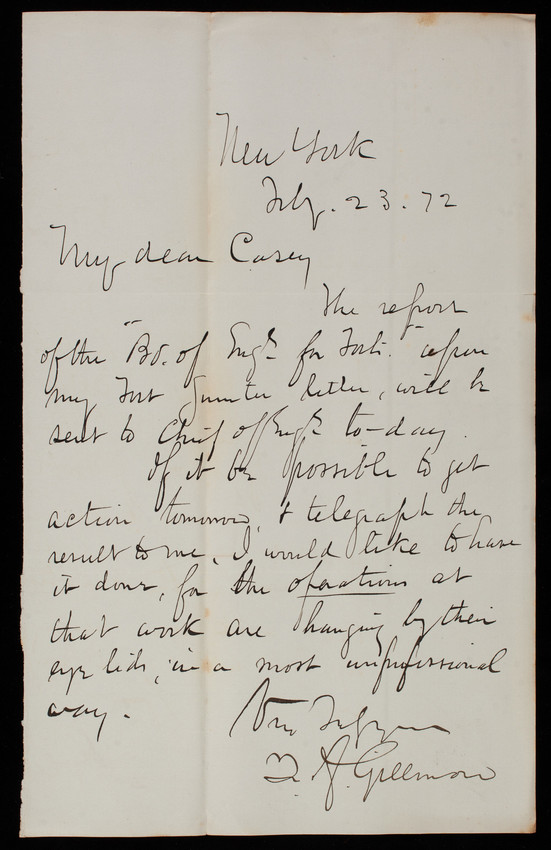 New York
Feby. 23. 72
My dear Casey
The report
of the "Bd. of Engrs. for Forts." upon
my Fort Sumter letter, will be
sent to Chief of Engrs. to-day.
If it be possible to get
action tomorrow, & telegraph the
result to me, I would like to have
it done, for the operations at
that work are hanging by their
eye lids, in a most unprofessional
way.
Q. A. Gillmore